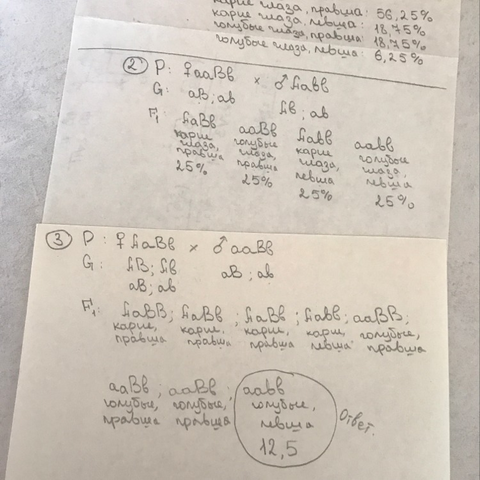 карие глаза, правша: 56,25%
карие глаза, левша: 18,75%
голубые глаза, правша: 18,75%
голубые глаза, левша: 6,25%
② P: ♀ aaBb × ♂ Aabb
G: aB; ab Ab; ab
F₁ AaBb aaBb Aabb aabb
карие глаза, правша 25%
голубые глаза, правша 25%
карие глаза, левша 25%
голубые глаза левша 25%
③ P: ♀ AaBb × ♂ aaBb
G: AB; Ab aB; ab
aB; ab
F₁: AaBB; AaBb; AaBb; Aabb; aaBB;
карие, карие, карие, карие, голубые,
правша правша правша левша правша
aaBb; aaBb; aabb
голубые, голубые, голубые,
правша правша левша
12,5
Ответ.